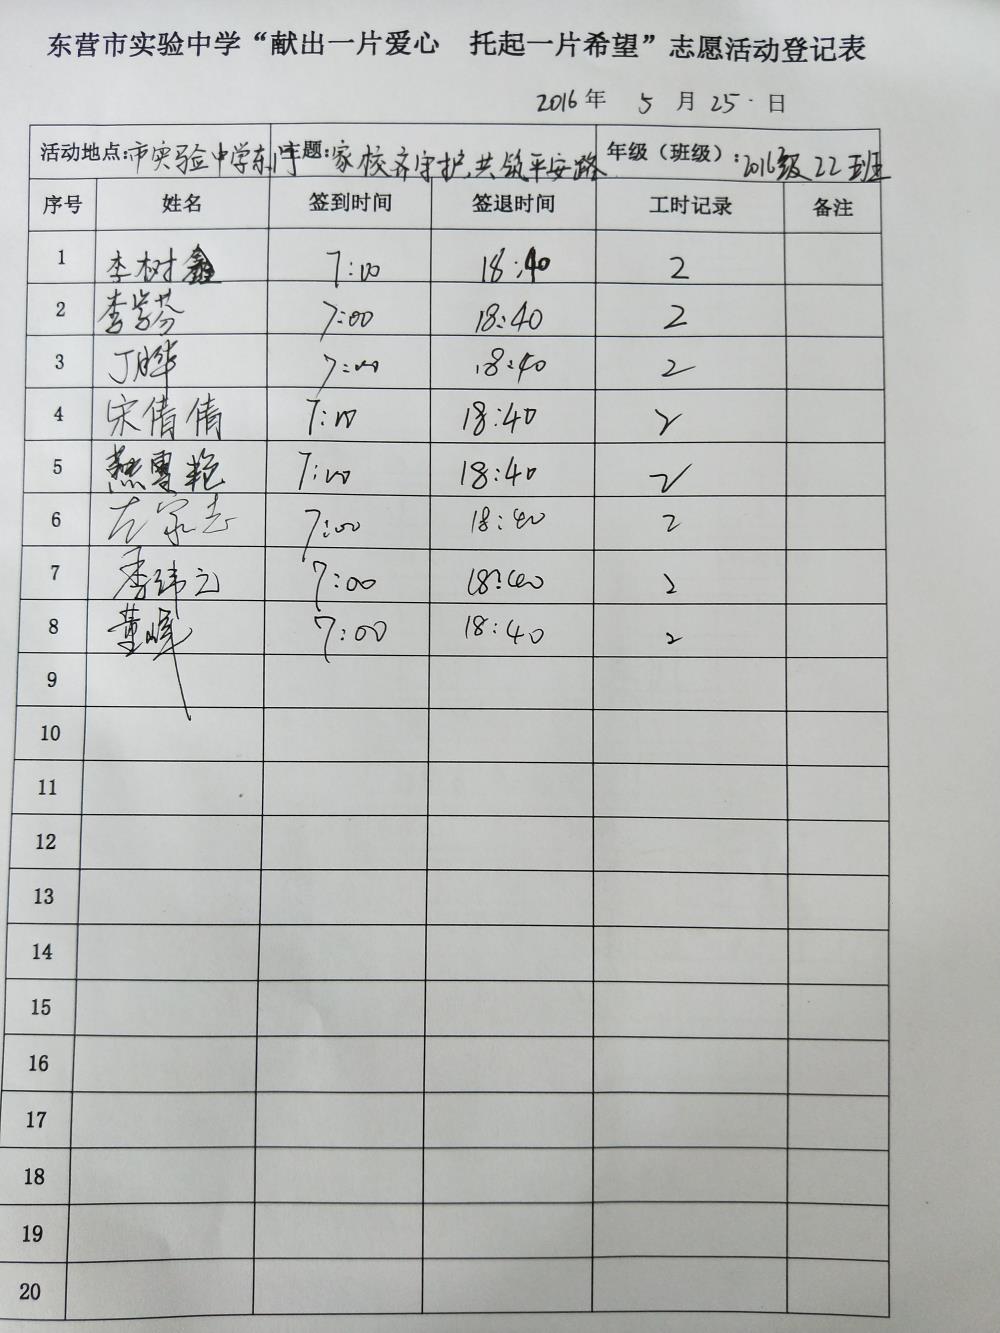 东营市实验中学“献出一片爱心 托起一片希望”志愿活动登记表
2016年 5 月 25 日
活动地点:市实验中学东门 主题:家校齐守护,共筑平安路 年级（班级）:2016级22班
序号 姓名 签到时间 签退时间 工时记录 备注
1 李树鑫 7:00 18:40 2
2 李学芬 7:00 18:40 2
3 丁晔 7:00 18:40 2
4 宋倩倩 7:00 18:40 2
5 燕雪艳 7:00 18:40 2
6 左家志 7:00 18:40 2
7 季纬云 7:00 18:40 2
8 董峰 7:00 18:40 2
9
10
11
12
13
14
15
16
17
18
19
20